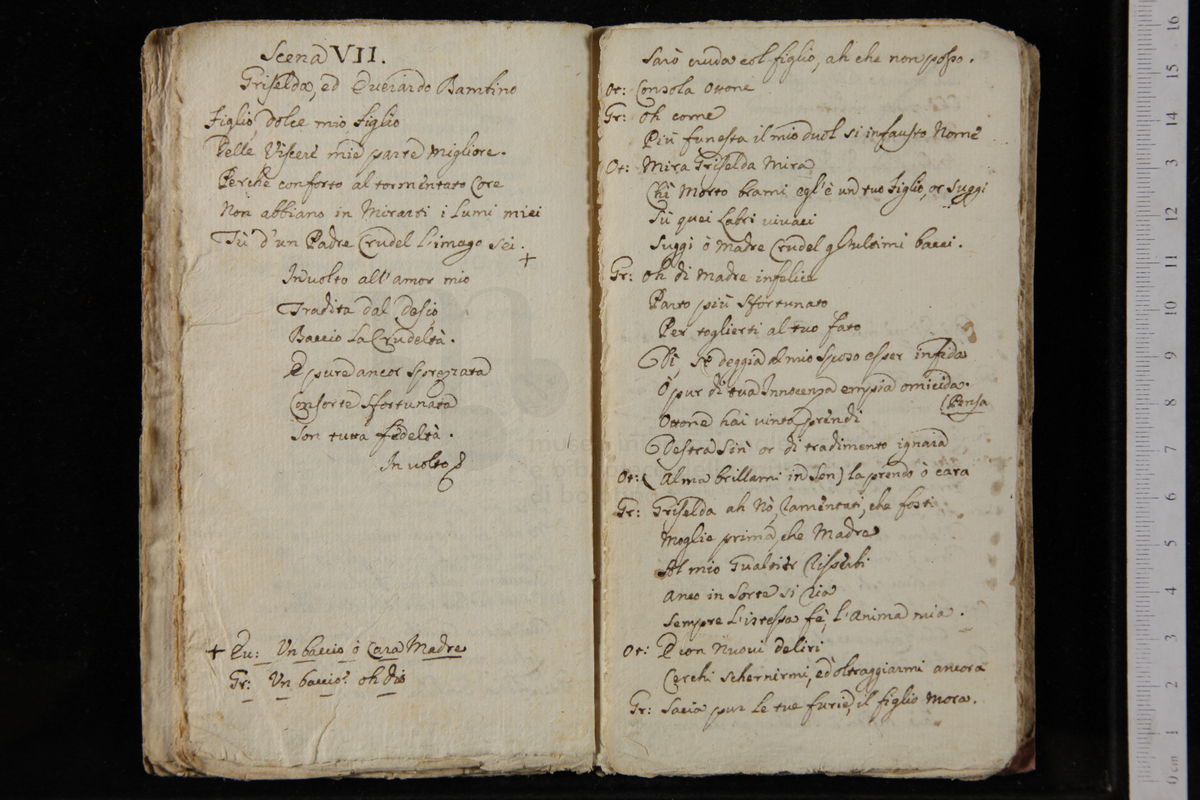 Scena VII.
Griselda, ed Everardo Bambino
Figlio, dolce mio figlio
Delle Viscere mie parte migliore.
Perche conforto al tormentato Core
Non abbiano in Mirarti i Lumi miei
Tù d'un Padre Crudel L'imago sei. +
In volto all'amor mio
Tradita dal desio
Baccio La Crudeltà.
E pure ancor sprezzata
Consorte sfortunata
Son tutta fedeltà.
In volto
+ Eu: Un baccio ò Cara Madre
Gr: Un baccio? oh dio
Sarò cruda col figlio, ah che non posso.
Ot: Consola Ottone
Gr: Oh come
Più funesta il mio duol si infausto Nome
Ot: Mira Griselda Mira
Chi Morto brami egl'è un tuo figlio, or suggi
Sù quei Labri vivaci
Suggi ò Madre Crudel gl'ultimi bacci.
Gr: Oh di Madre infelice
Parto più sfortunato
Per toglierti al tuo fato
Dì, se deggia al mio sposo esser infida
O pur di tua Innocenza empia omicida.
(Pensa
Ottone hai vinto, prendi
Destra sin or di tradimento ignara
Ot: (Alma brillami in sen) la prendo ò cara
Gr: Griselda ah Nò, ramentati, che fosti
Moglie prima, che Madre
Al mio Gualtier si serbi
Anco in sorte si ria
Sempre l'istessa fè, l'anima mia.
Ot: E con Nuovi deliri
Cerchi schernirmi, ed oltraggiarmi ancora
Gr: Sacia pur le tue furie, il figlio mora.